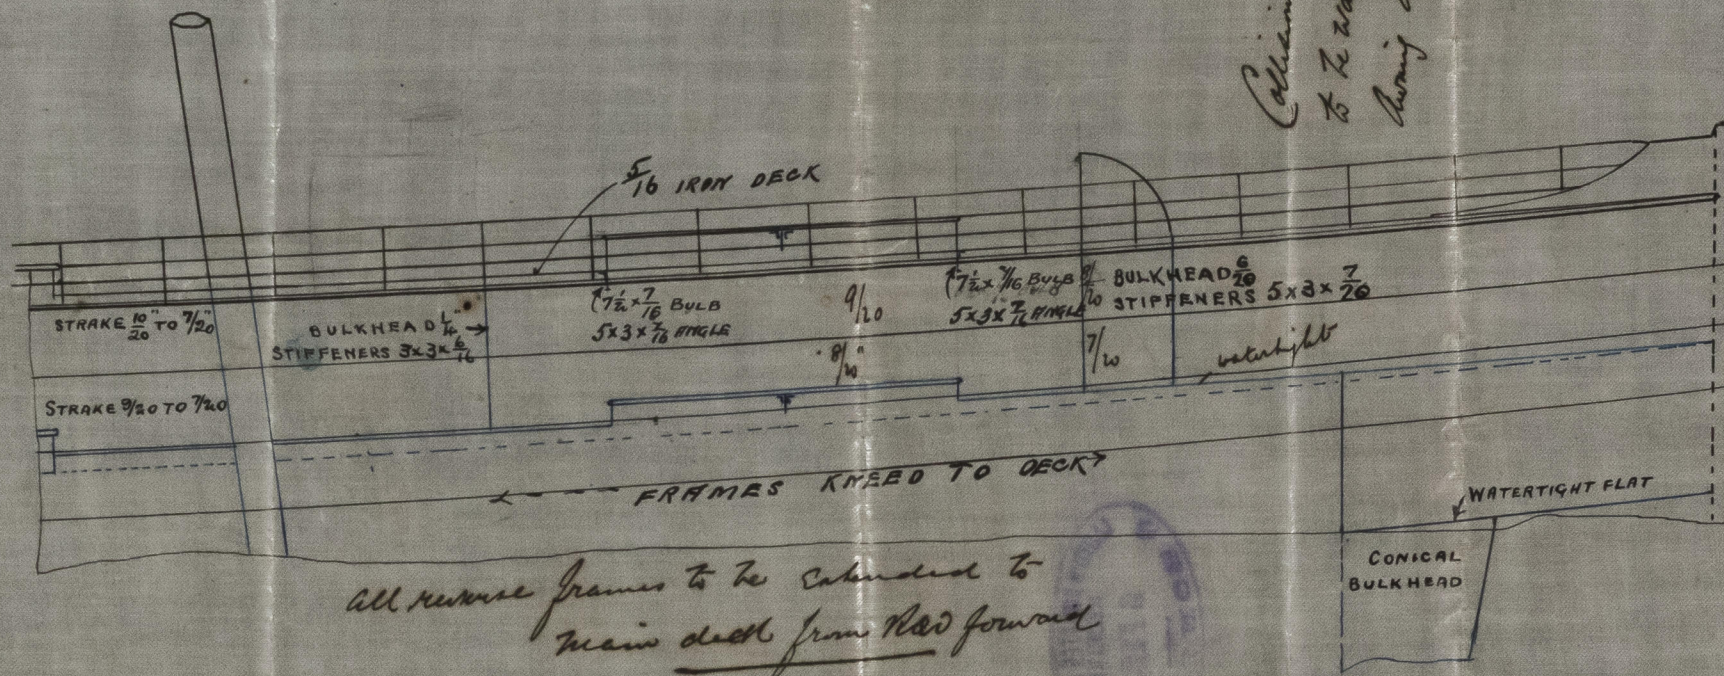 Collision
to be wa
Awning
5/16 IRON DECK
STRAKE 10/20" TO 7/20"
BULKHEAD 1/4"
STIFFENERS 3x3x 6/16
7 1/2 x 7/16 BULB
5x3x 7/16 ANGLE
9/20
8/20"
7 1/2 x 7/16 BULB
5x3x 7/16 ANGLE
8/20
BULKHEAD 6/20
STIFFENERS 5x3x 7/20
7/20
watertight
STRAKE 9/20 TO 7/20
FRAMES KNEED TO DECK
WATERTIGHT FLAT
CONICAL
BULKHEAD
all reverse frames to be extended to
main deck from forward